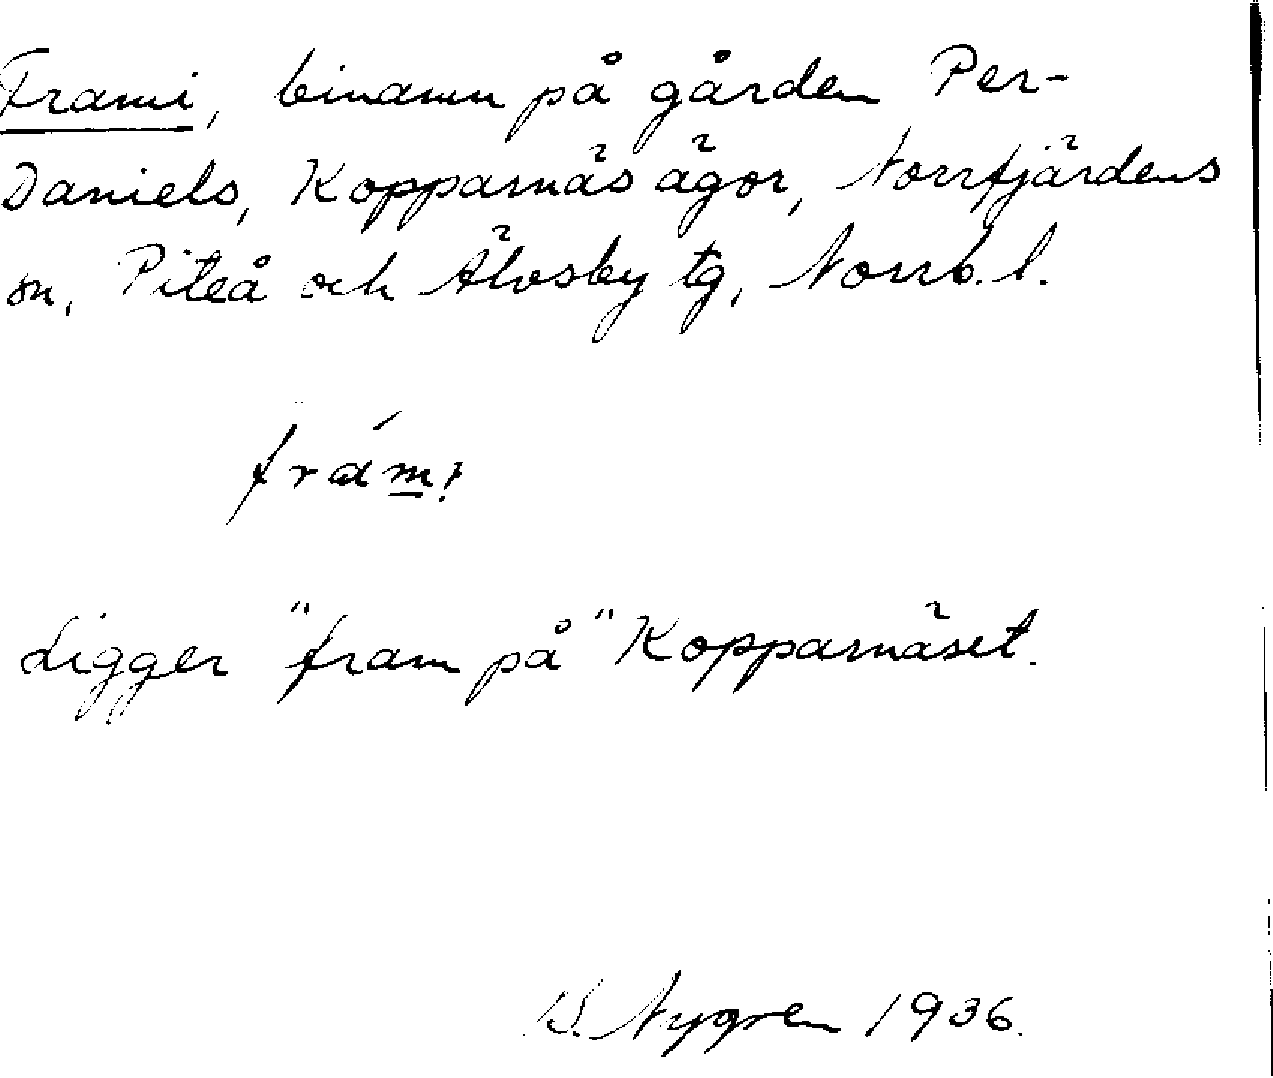 Frami, binamn på gården Per-
Daniels, Kopparnäs ägor, Norrfjärdens
sn, Piteå och Älvsby tg, Norrb. l.
Ligger "fram på" Kopparnäset.
Nygren 1936.